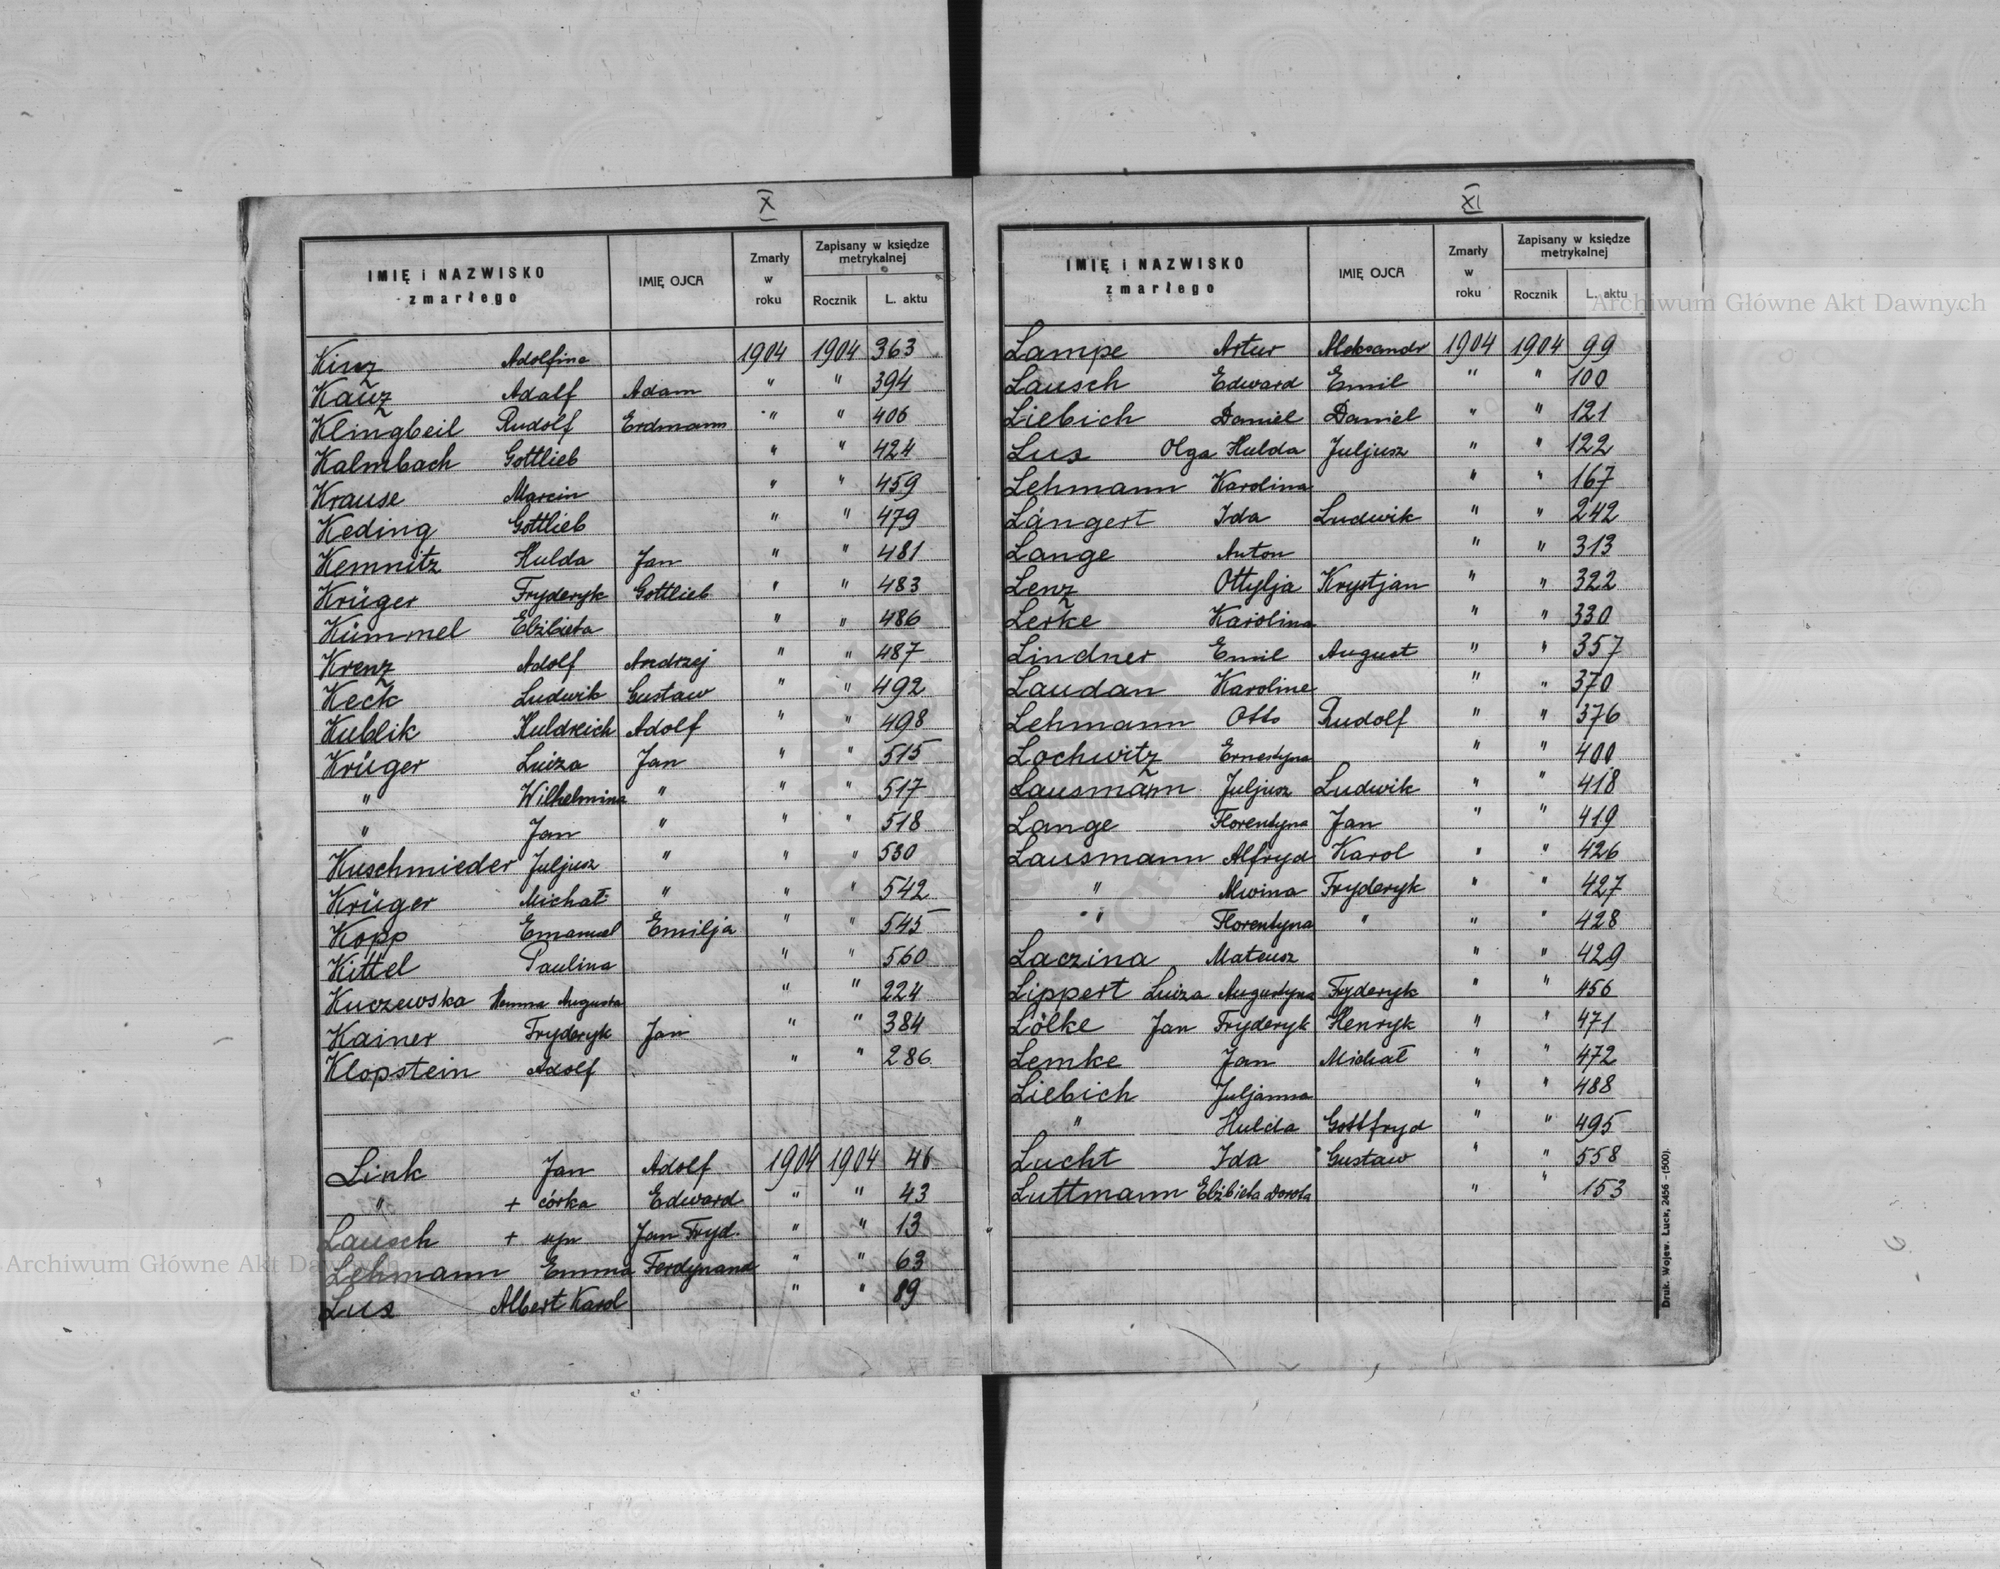 X
IMIĘ i NAZWISKO zmarłego IMIĘ OJCA Zmarły w roku Zapisany w księdze metrykalnej Rocznik L. aktu
Kinz Adolfine 1904 1904 363
Kauz Adolf Adam " " 394
Klingbeil Rudolf Erdmann " " 406
Kalmbach Gottlieb " " 424
Krause Marcin " " 459
Keding Gottlieb " " 479
Kemnitz Hulda Jan " " 481
Krüger Fryderyk Gottlieb " " 483
Kümmel Elżbieta " " 486
Krenz Adolf Andrzej " " 487
Keck Ludwik Gustaw " " 492
Kublik Huldreich Adolf " " 498
Krüger Luiza Jan " " 515
" Wilhelmina " " " 517
" Jan " " " 518
Kuschmieder Juljusz " " " 530
Krüger Michał " " " 542
Kopp Emanuel Emilja " " 545
Kittel Paulina " " 560
Kuczewska Augusta " " 224
Kainer Fryderyk Jan " " 384
Klopstein Adolf " " 286
Link Jan Adolf 1904 1904 46
" + córka Edward " " 43
Lausch + syn Jan Fryd. " " 13
Lehmann Emma Ferdynand " " 63
Lus Albert Karol " " 89
XI
IMIĘ i NAZWISKO zmarłego IMIĘ OJCA Zmarły w roku Zapisany w księdze metrykalnej Rocznik L. aktu
Lampe Artur Aleksandr 1904 1904 99
Lausch Edward Emil " " 100
Liebich Daniel Daniel " " 121
Lus Olga Hulda Juljusz " " 122
Lehmann Karolina " " 167
Längert Ida Ludwik " " 242
Lange Anton " " 313
Lenz Ottylja Krystjan " " 322
Lerke Karolina " " 330
Lindner Emil August " " 357
Laudan Karoline " " 370
Lehmann Otto Rudolf " " 376
Lochwitz Ernestyna " " 400
Lausmann Juljusz Ludwik " " 418
Lange Florentyna Jan " " 419
Lausmann Alfryd Karol " " 426
" Alwina Fryderyk " " 427
" Florentyna " " " 428
Laczina Mateusz " " 429
Lippert Luiza Augustyna Fryderyk " " 456
Lölke Jan Fryderyk Henryk " " 471
Lemke Jan Michał " " 472
Liebich Juljanna " " 488
" Hulda Gottfryd " " 495
Lucht Ida Gustaw " " 558
Luttmann Elżbieta Dorota " " 153
Druk. Wojew. Łuck, 2456 - (500).
Archiwum Główne Akt Dawnych
Archiwum Główne Akt Dawnych